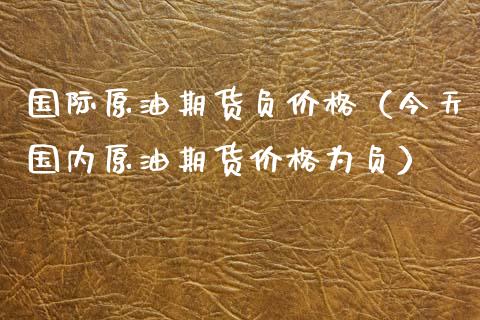 国际原油期货负价格（今天
国内原油期货价格为负）